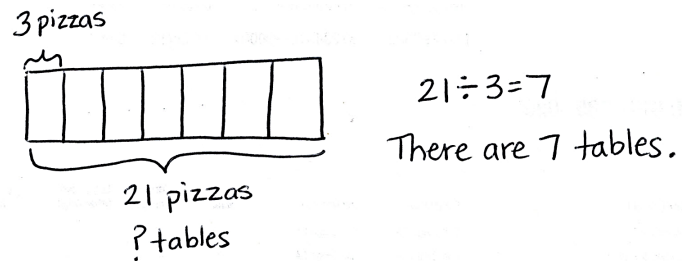 3 pizzas
21 pizzas
? tables
21÷3=7
There are 7 tables.